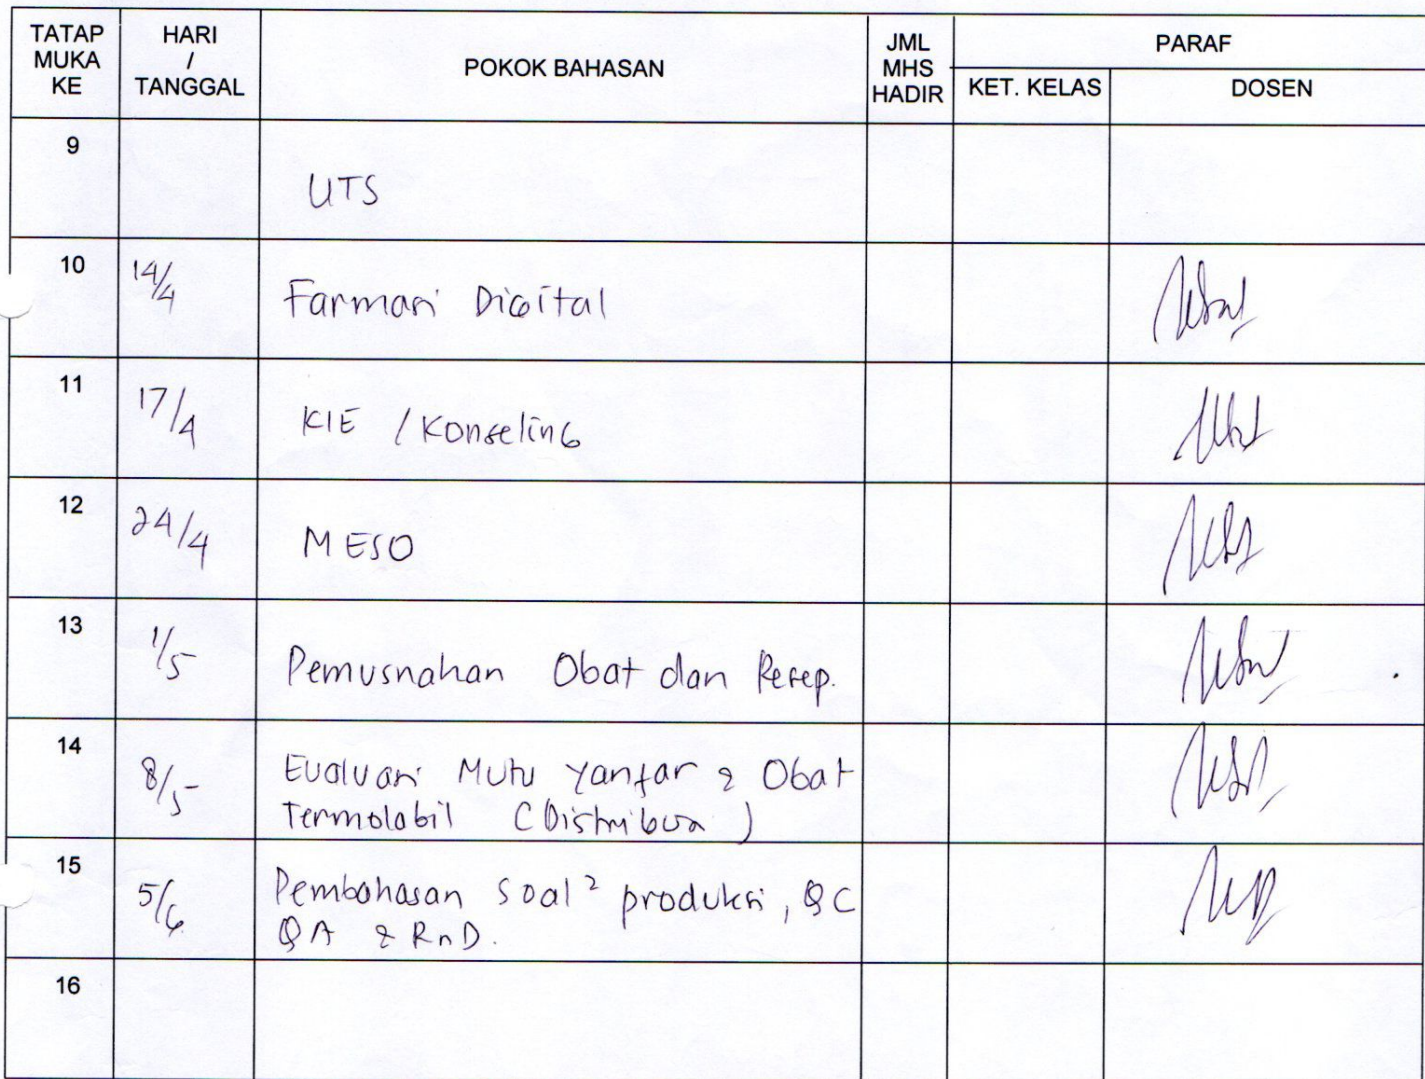 TATAP MUKA KE
HARI / TANGGAL
POKOK BAHASAN
JML MHS HADIR
PARAF
KET. KELAS
DOSEN
9
UTS
10
14/4
Farmasi Digital
11
17/4
KIE / Konseling
12
24/4
MESO
13
1/5
Pemusnahan Obat dan Resep.
14
8/5
Evaluasi Mutu Yanfar & Obat
Termolabil (Distribusi)
15
5/6
Pembahasan Soal² produksi, QC
QA & RnD.
16